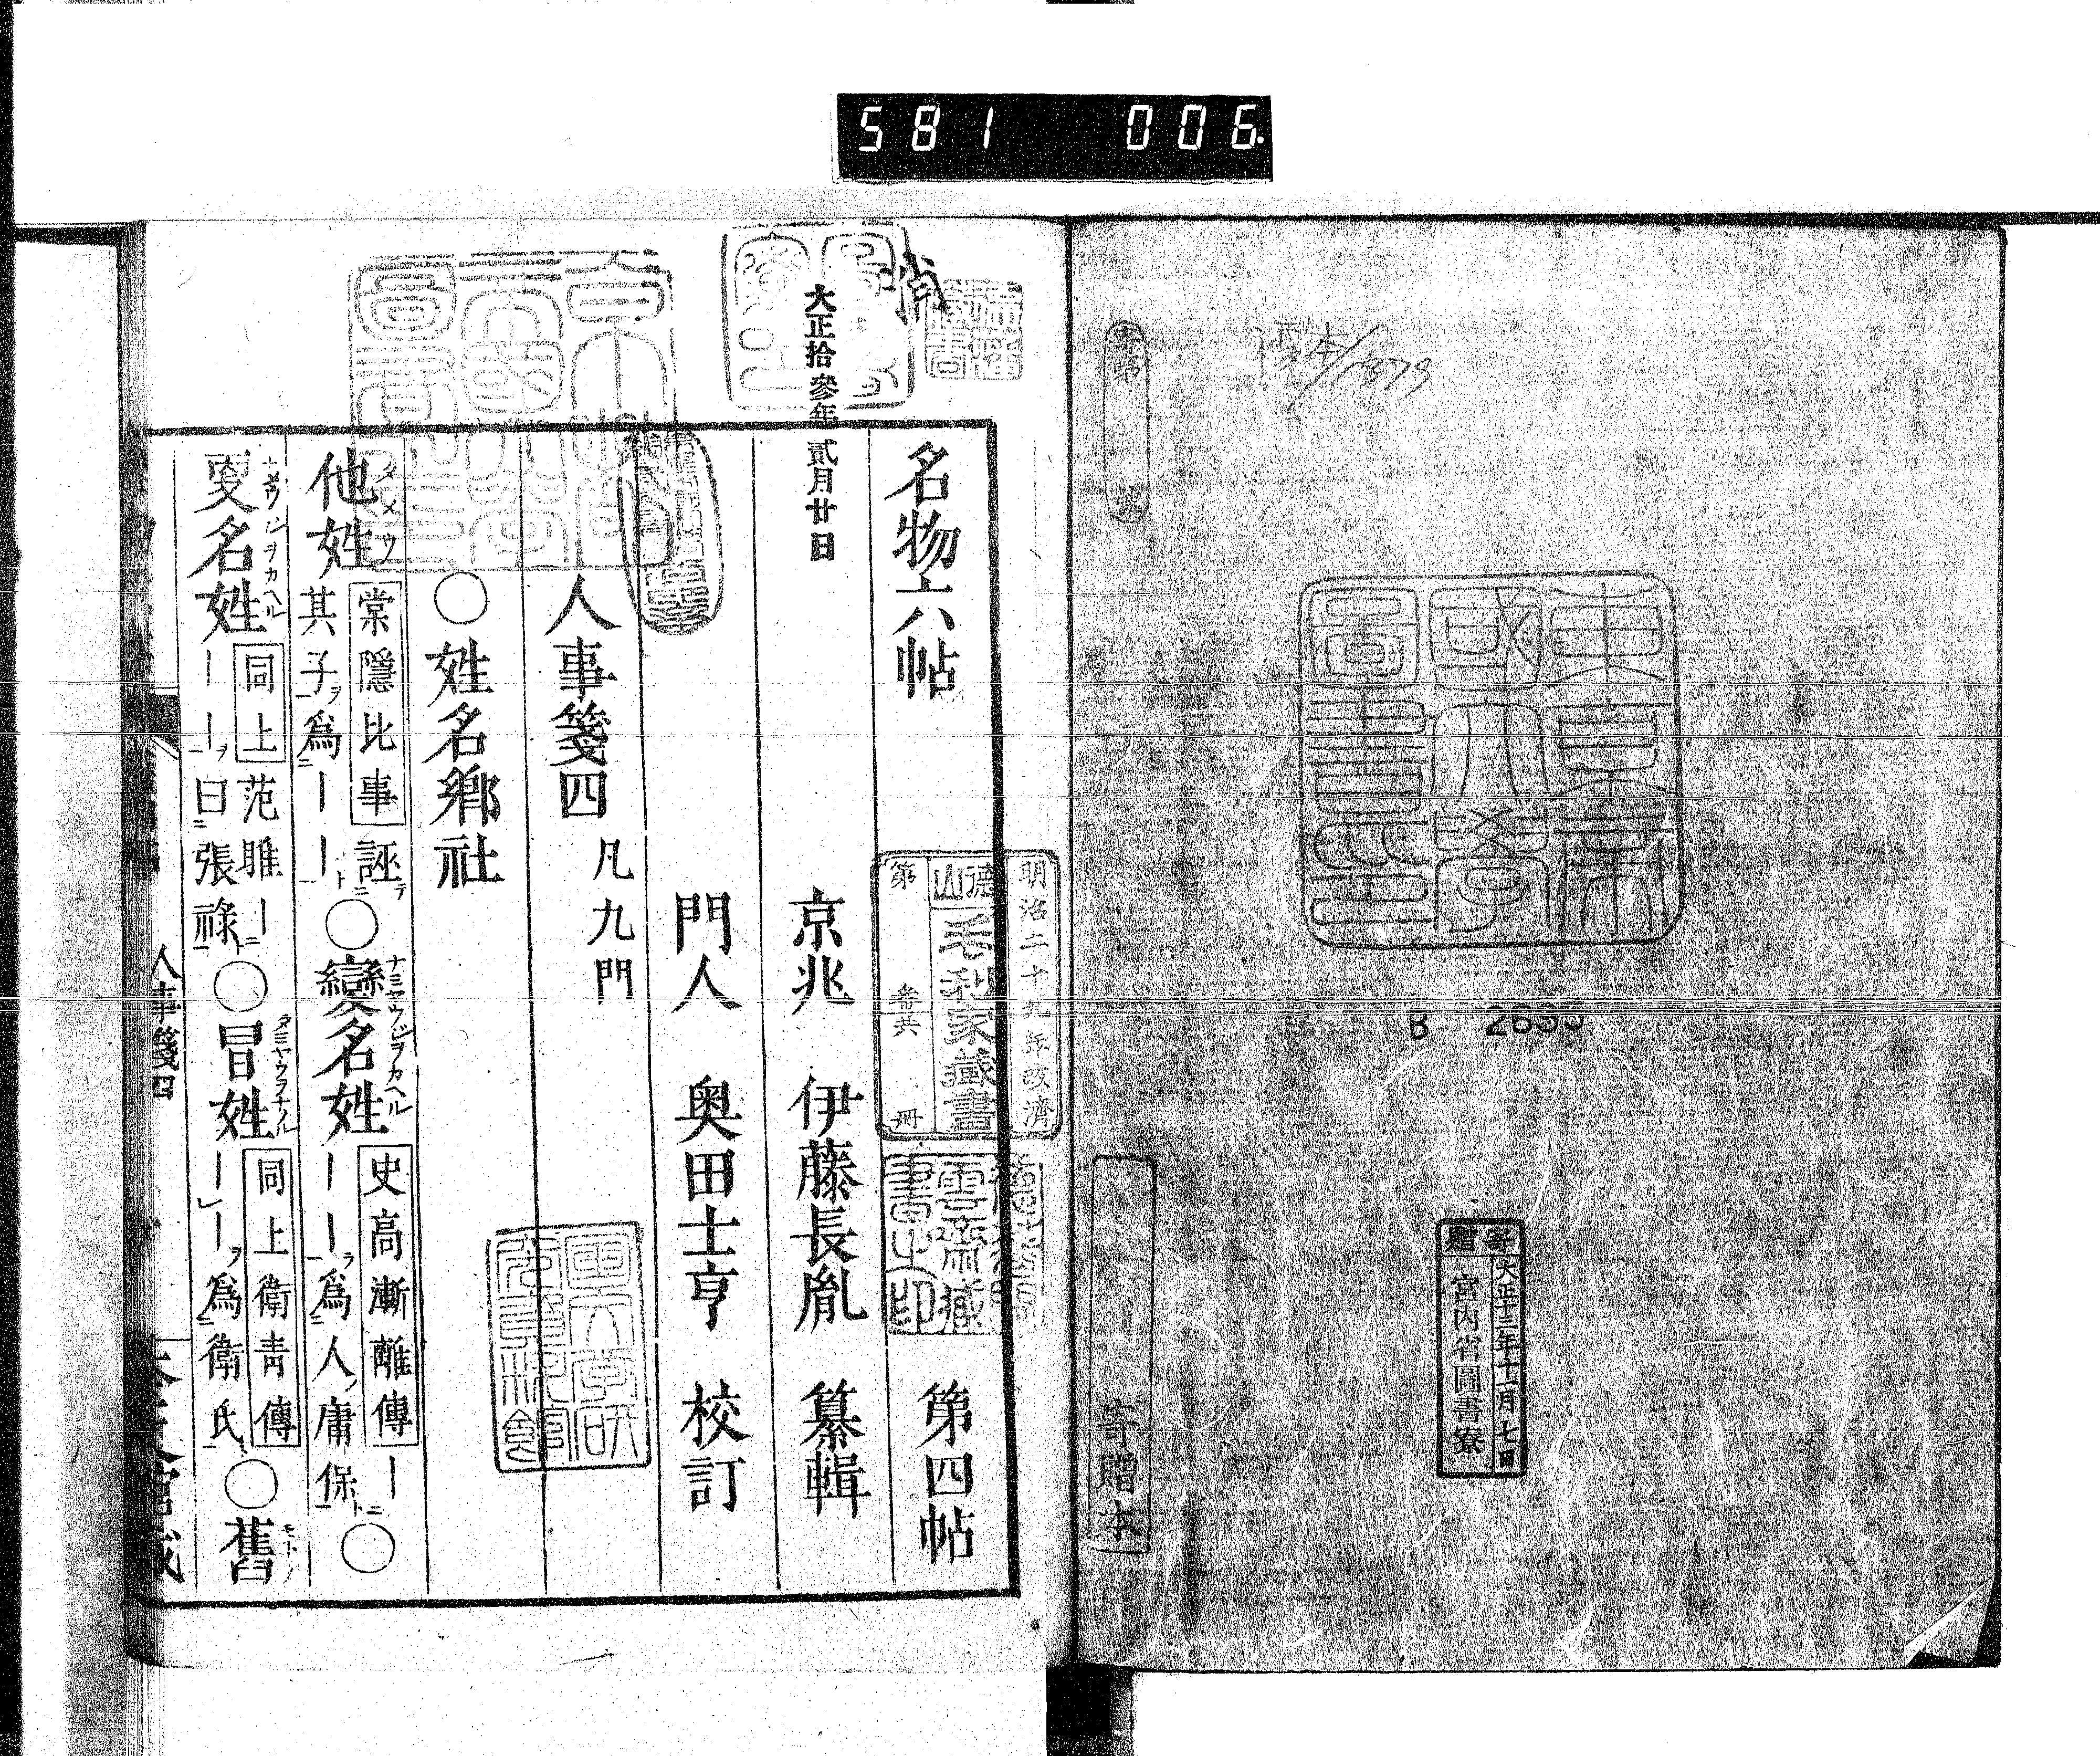 581 006
1879
東京帝國大學圖書印
B 2695
寄贈
大正十三年十一月七日
宮内省圖書寮
寄贈本
消
大正拾參年貳月廿日
明治二十九年改濟
德山
毛利家藏書
第 番共 冊
名物六帖 第四帖
京兆 伊藤長胤 纂輯
門人 奧田士亨 校訂
人事箋四 凡九門
○姓名鄉社
他姓 タメウ 棠隱比事 誣テ其子ヲ爲ニ――ト
○變名姓 ナミヤウジヲカヘル 史高漸離傳 ――ヲ爲ニ人ノ庸保ト
○更名姓 同上 范雎――ヲ曰ニ張祿ト
○冒姓 タミヤウヲナノル 同上衛靑傳 ――ヲ爲ニ衛氏ト
○舊 モトノ
人事箋四